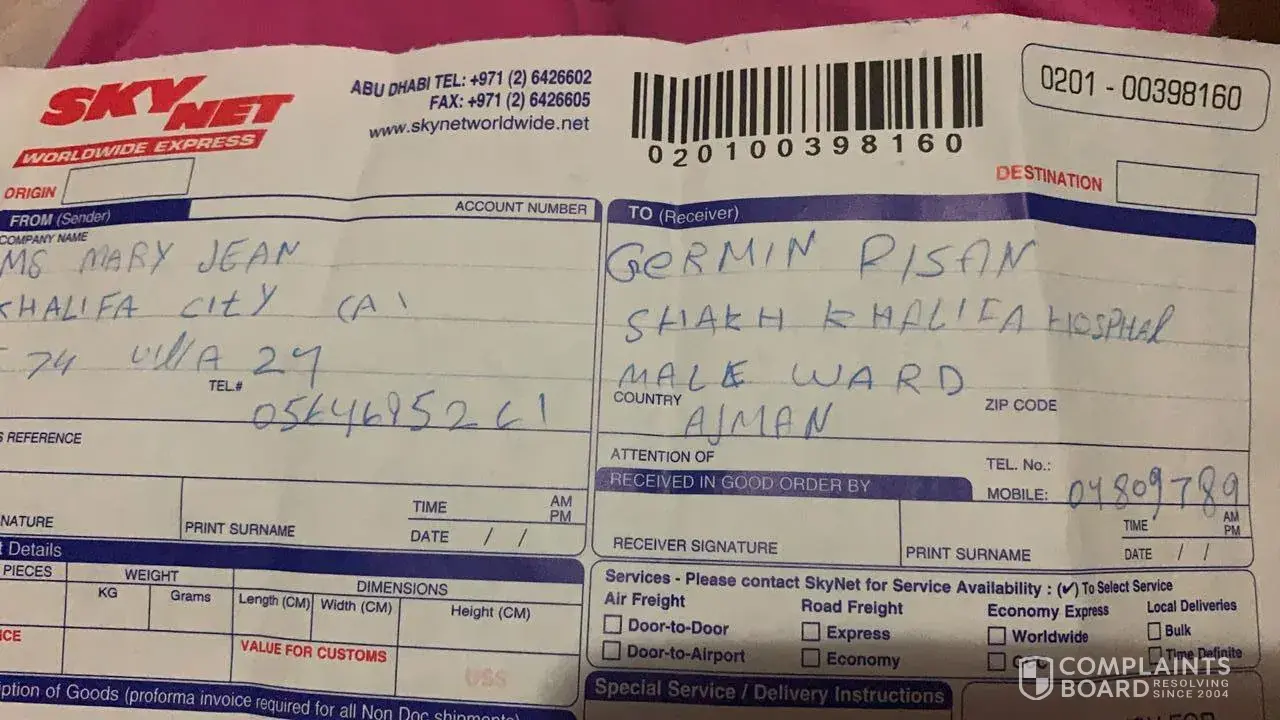 SKY NET
WORLDWIDE EXPRESS
ABU DHABI TEL: +971 (2) 6426602
FAX: +971 (2) 6426605
www.skynetworldwide.net
020100398160
0201 - 00398160
ORIGIN
DESTINATION
FROM (Sender)
ACCOUNT NUMBER
COMPANY NAME
MS MARY JEAN
KHALIFA CITY (A)
74 VILLA 29
TEL.#
0564695261
REFERENCE
NATURE
PRINT SURNAME
TIME AM PM
DATE / /
TO (Receiver)
GERMIN PISAN
SHAKH KHALIFA HOSPITAL
MALE WARD
COUNTRY
AJMAN
ZIP CODE
ATTENTION OF
TEL. No.:
RECEIVED IN GOOD ORDER BY
MOBILE: 04809789
RECEIVER SIGNATURE
PRINT SURNAME
TIME AM PM
DATE / /
t Details
PIECES
WEIGHT
DIMENSIONS
KG
Grams
Length (CM)
Width (CM)
Height (CM)
ICE
VALUE FOR CUSTOMS
US$
ption of Goods (proforma invoice required for all Non Doc shipments)
Services - Please contact SkyNet for Service Availability : (✓) To Select Service
Air Freight
Road Freight
Economy Express
Local Deliveries
Door-to-Door
Express
Worldwide
Bulk
Door-to-Airport
Economy
GCC
Time Definite
Special Service / Delivery Instructions
COMPLAINTS
BOARD
RESOLVING
SINCE 2004